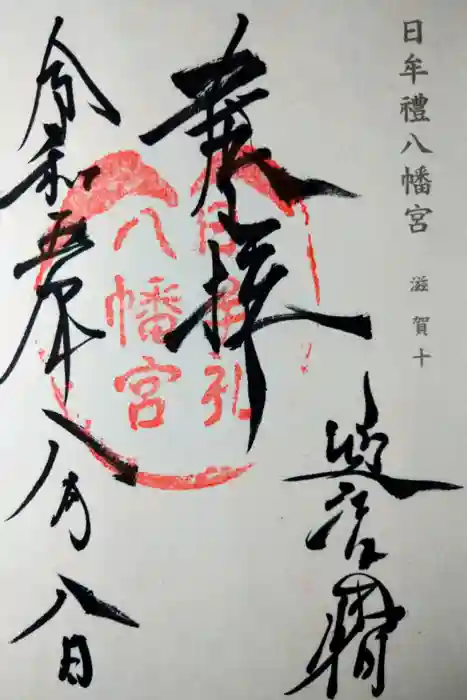 日牟禮八幡宮 滋賀十
奉拝
日牟礼
八幡宮
令和五年八月八日